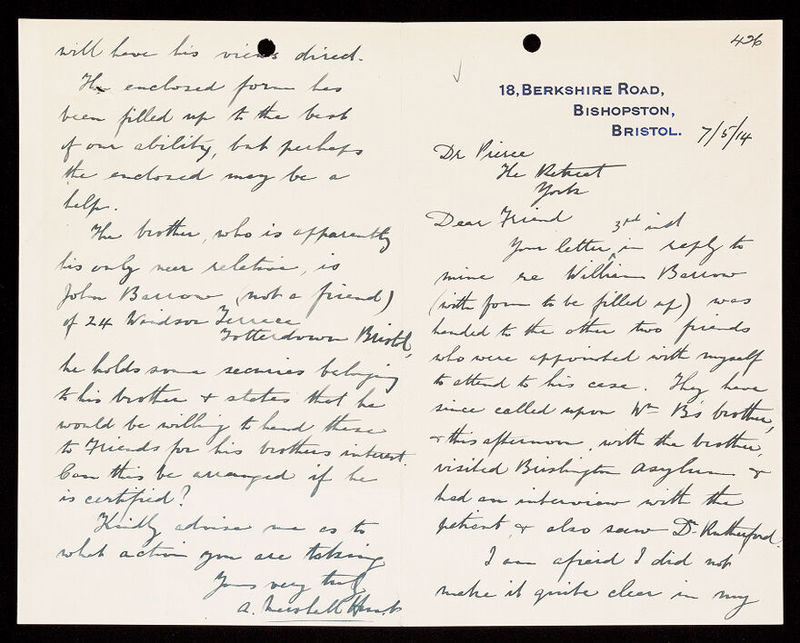 will have his views direct.
The enclosed form has
been filled up to the best
of our ability, but perhaps
the enclosed may be a
help.
The brother, who is apparently
his only near relation, is
John Barrow (not a friend)
of 24 Windsor Terrace
Totterdown Bristol,
he holds some securies belonging
to his brother & states that he
would be willing to hand these
to Friends for his brothers interest.
Can this be arranged if he
is certified?
Kindly advise me as to
what action you are taking
Yours very truly
A.
426
18, BERKSHIRE ROAD,
BISHOPSTON,
BRISTOL.
7/5/14
Dr Pierce
The Retreat
York
Dear Friend
3rd inst
Your letter, in reply to
mine re William Barrow
(with form to be filled up) was
handed to the other two friends
who were appointed with myself
to attend to his case. They have
since called upon Wm B's brother,
& this afternoon, with the brother,
visited Brislington Asylum &
had an interview with the
patient, & also saw Dr Rutherford.
I am afraid I did not
make it quite clear in my